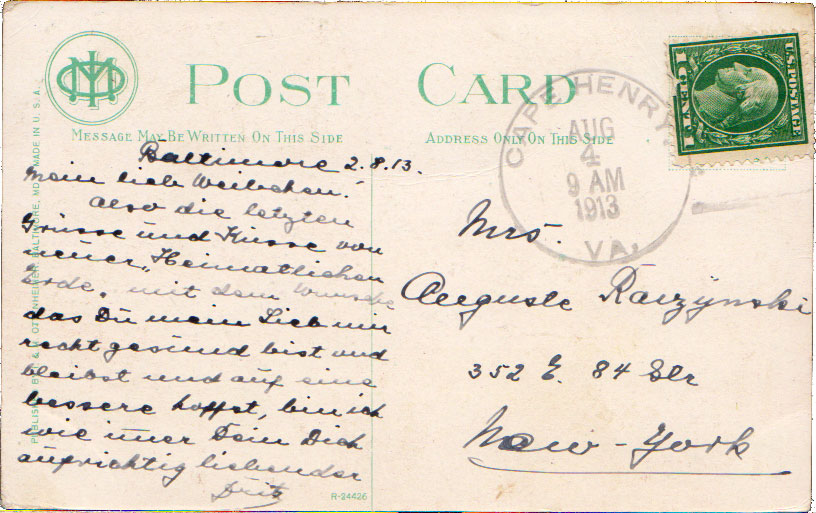 POST CARD
MESSAGE MAY BE WRITTEN ON THIS SIDE
ADDRESS ONLY ON THIS SIDE
U.S. POSTAGE
CAPE HENRY
AUG
4
9 AM
1913
VA.
Baltimore 2.8.13.
Mein lieb Weibchen!
Also die letzten
Grüsse und Küsse von
neuer „Heimatlichen
Erde, mit dem Wunsche
das Du mein Lieb mir
recht gesund bist und
bleibst und auf eine
bessere hoffst, bin ich
wie imer Dein Dich
aufrichtig liebender
Fritz
Mrs.
Auguste Raczynski
352 E. 84 Str
New-York
MADE IN U.S.A.
OTTENHEIMER, BALTIMORE, MD.
R-24426